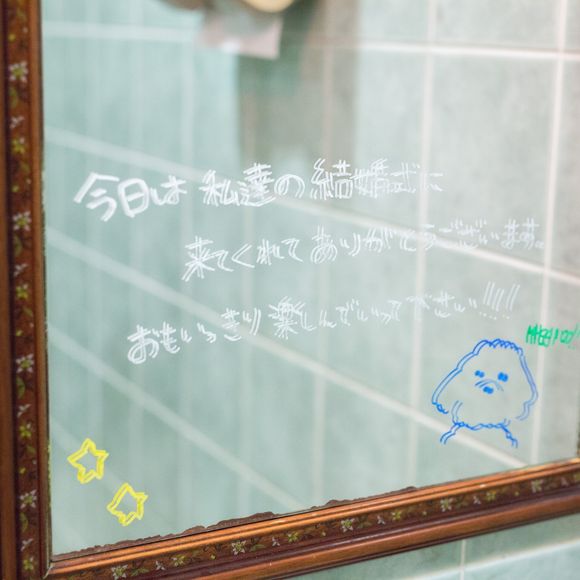 今日は 私達の結婚式に
来てくれて ありがとうございます。
おもいっきり 楽しんでいって下さい!!!!